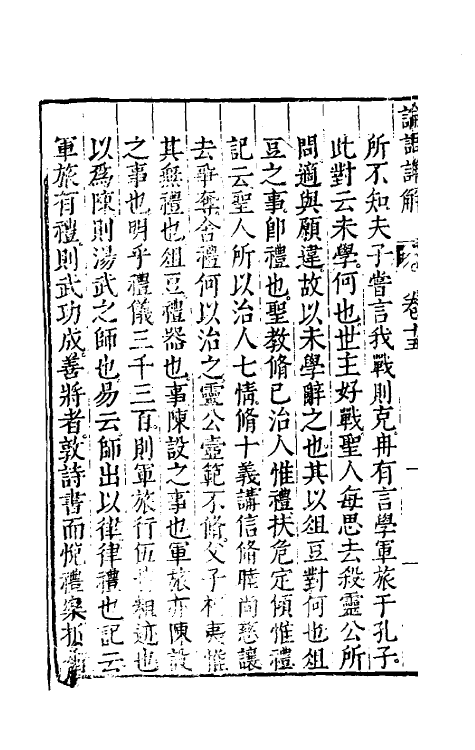 論語詳解 卷十五
所不知夫子嘗言我戰則克冉有言學軍旅于孔子
此對云未學何也世主好戰聖人每思去殺靈公所
問適與願違故以未學辭之也其以俎豆對何也俎
豆之事卽禮也聖教脩己治人惟禮扶危定傾惟禮
記云聖人所以治人七情脩十義講信脩睦尚慈讓
去爭奪舍禮何以治之靈公壼範不脩父子相夷惟
其無禮也俎豆禮器也事陳設之事也軍旅亦陳設
之事也明乎禮儀三千三百則軍旅行伍皆粗迹也
以爲陳則湯武之師也易云師出以律律禮也記云
軍旅有禮則武功成善將者敦詩書而悅禮案